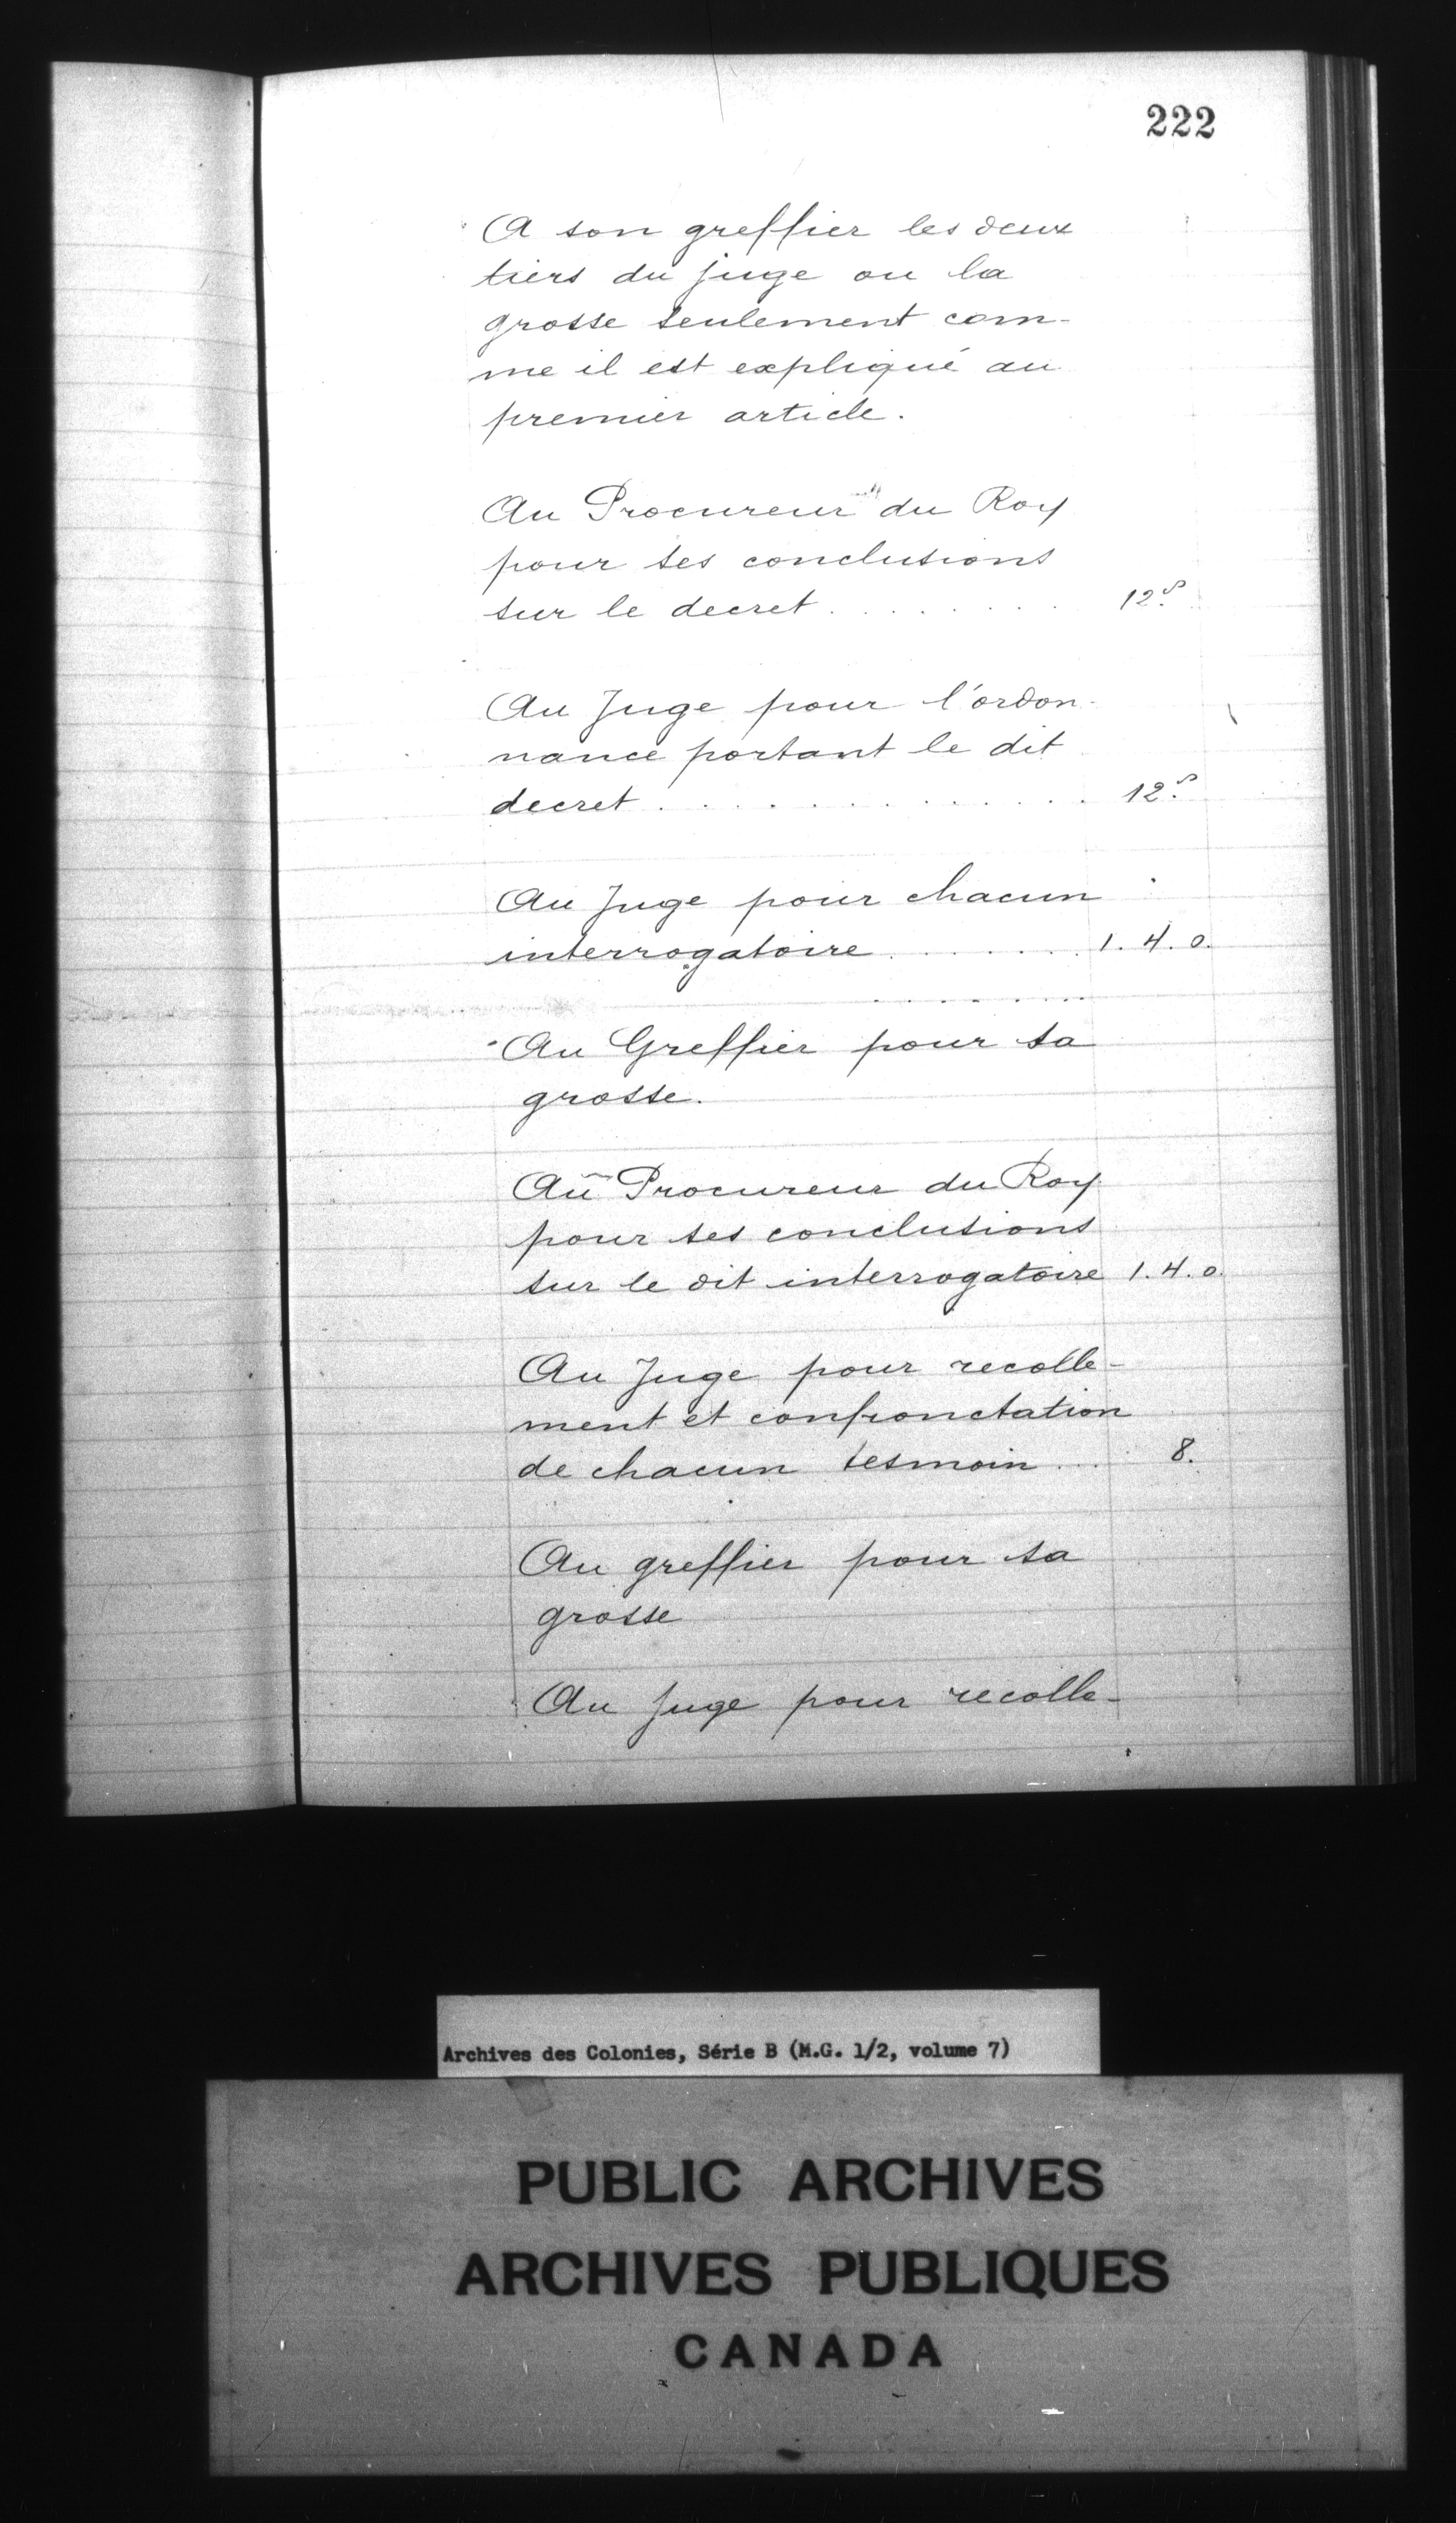 222
A son greffier les deux
tiers du juge ou la
grosse seulement com-
me il est expliqué au
premier article.
Au Procureur du Roy
pour ses conclusions
sur le decret . . . . . . . . 12.s
Au Juge pour l'ordon-
nance portant le dit
decret . . . . . . . . . . . . 12.s
Au Juge pour chacun
interrogatoire . . . . . . 1. 4. 0.
Au Greffier pour sa
grosse.
Au Procureur du Roy
pour ses conclusions
sur le dit interrogatoire 1. 4. 0.
Au Juge pour recolle-
ment et confronctation
de chacun tesmoin . . . 8.
Au greffier pour sa
grosse
Au Juge pour recolle-
Archives des Colonies, Série B (M.G. 1/2, volume 7)
PUBLIC ARCHIVES
ARCHIVES PUBLIQUES
CANADA